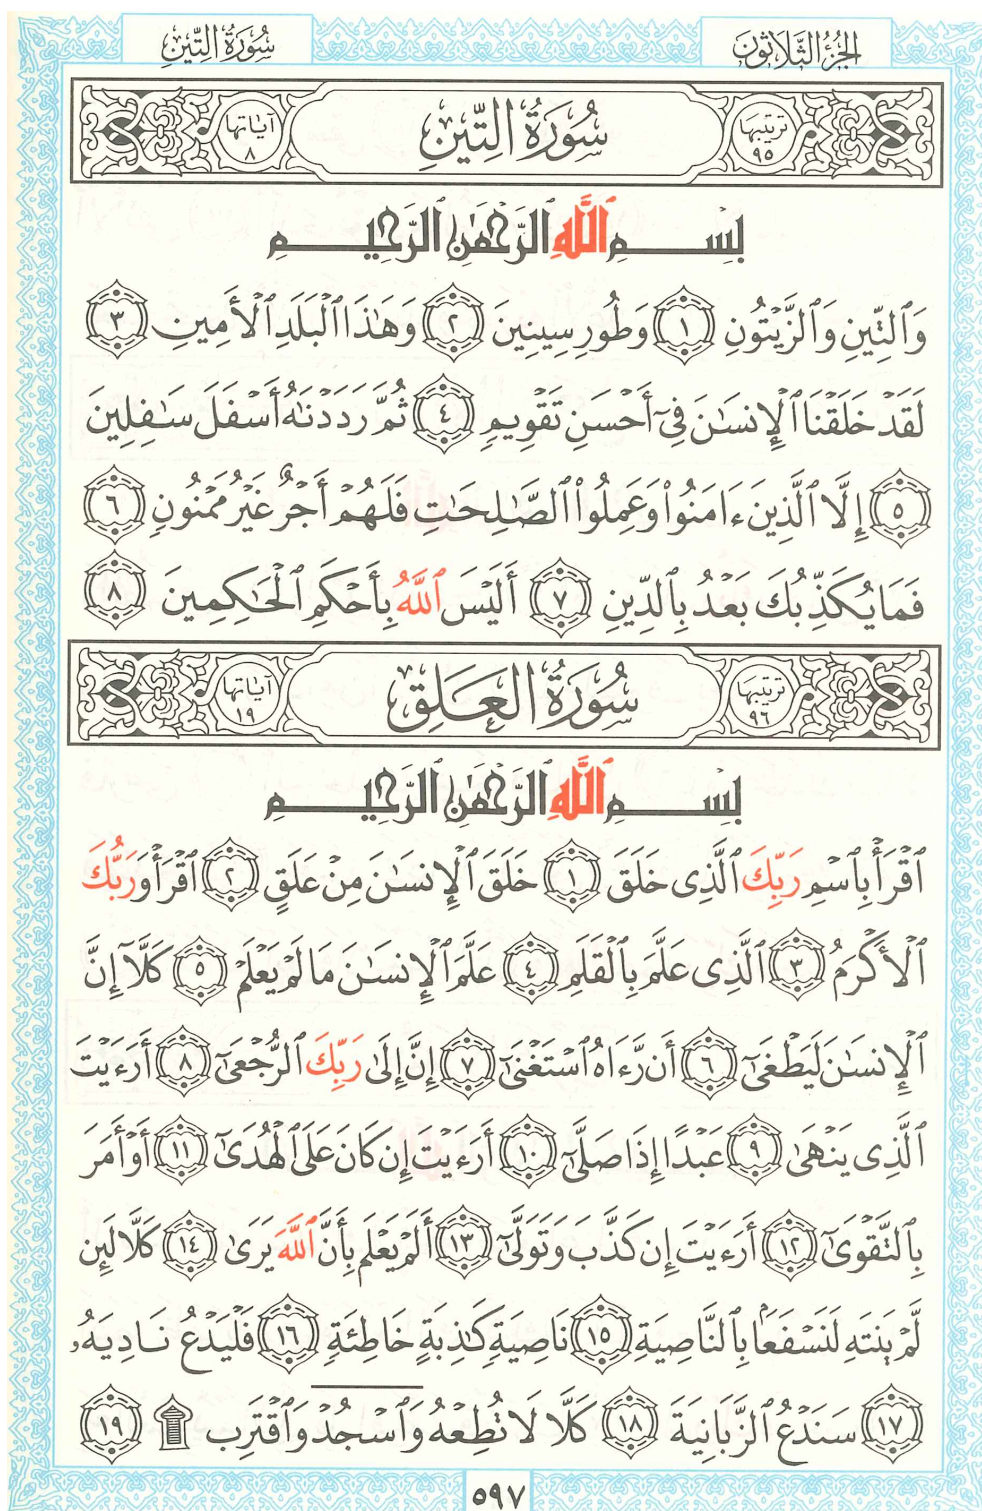 الجزء الثلاثون
سورة التين
ترتيبها ٩٥ سورة التين آياتها ٨
بِسْمِ ٱللَّهِ ٱلرَّحْمَٰنِ ٱلرَّحِيمِ
وَٱلتِّينِ وَٱلزَّيْتُونِ ١ وَطُورِ سِينِينَ ٢ وَهَٰذَا ٱلْبَلَدِ ٱلْأَمِينِ ٣
لَقَدْ خَلَقْنَا ٱلْإِنسَٰنَ فِىٓ أَحْسَنِ تَقْوِيمٍ ٤ ثُمَّ رَدَدْنَٰهُ أَسْفَلَ سَٰفِلِينَ
٥ إِلَّا ٱلَّذِينَ ءَامَنُوا۟ وَعَمِلُوا۟ ٱلصَّٰلِحَٰتِ فَلَهُمْ أَجْرٌ غَيْرُ مَمْنُونٍ ٦
فَمَا يُكَذِّبُكَ بَعْدُ بِٱلدِّينِ ٧ أَلَيْسَ ٱللَّهُ بِأَحْكَمِ ٱلْحَٰكِمِينَ ٨
ترتيبها ٩٦ سورة العلق آياتها ١٩
بِسْمِ ٱللَّهِ ٱلرَّحْمَٰنِ ٱلرَّحِيمِ
ٱقْرَأْ بِٱسْمِ رَبِّكَ ٱلَّذِى خَلَقَ ١ خَلَقَ ٱلْإِنسَٰنَ مِنْ عَلَقٍ ٢ ٱقْرَأْ وَرَبُّكَ
ٱلْأَكْرَمُ ٣ ٱلَّذِى عَلَّمَ بِٱلْقَلَمِ ٤ عَلَّمَ ٱلْإِنسَٰنَ مَا لَمْ يَعْلَمْ ٥ كَلَّآ إِنَّ
ٱلْإِنسَٰنَ لَيَطْغَىٰٓ ٦ أَن رَّءَاهُ ٱسْتَغْنَىٰٓ ٧ إِنَّ إِلَىٰ رَبِّكَ ٱلرُّجْعَىٰٓ ٨ أَرَءَيْتَ
ٱلَّذِى يَنْهَىٰ ٩ عَبْدًا إِذَا صَلَّىٰٓ ١٠ أَرَءَيْتَ إِن كَانَ عَلَى ٱلْهُدَىٰٓ ١١ أَوْ أَمَرَ
بِٱلتَّقْوَىٰٓ ١٢ أَرَءَيْتَ إِن كَذَّبَ وَتَوَلَّىٰٓ ١٣ أَلَمْ يَعْلَم بِأَنَّ ٱللَّهَ يَرَىٰ ١٤ كَلَّا لَئِن
لَّمْ يَنتَهِ لَنَسْفَعًۢا بِٱلنَّاصِيَةِ ١٥ نَاصِيَةٍ كَٰذِبَةٍ خَاطِئَةٍ ١٦ فَلْيَدْعُ نَادِيَهُۥ
١٧ سَنَدْعُ ٱلزَّبَانِيَةَ ١٨ كَلَّا لَا تُطِعْهُ وَٱسْجُدْ وَٱقْتَرِب ۩ ١٩
٥٩٧